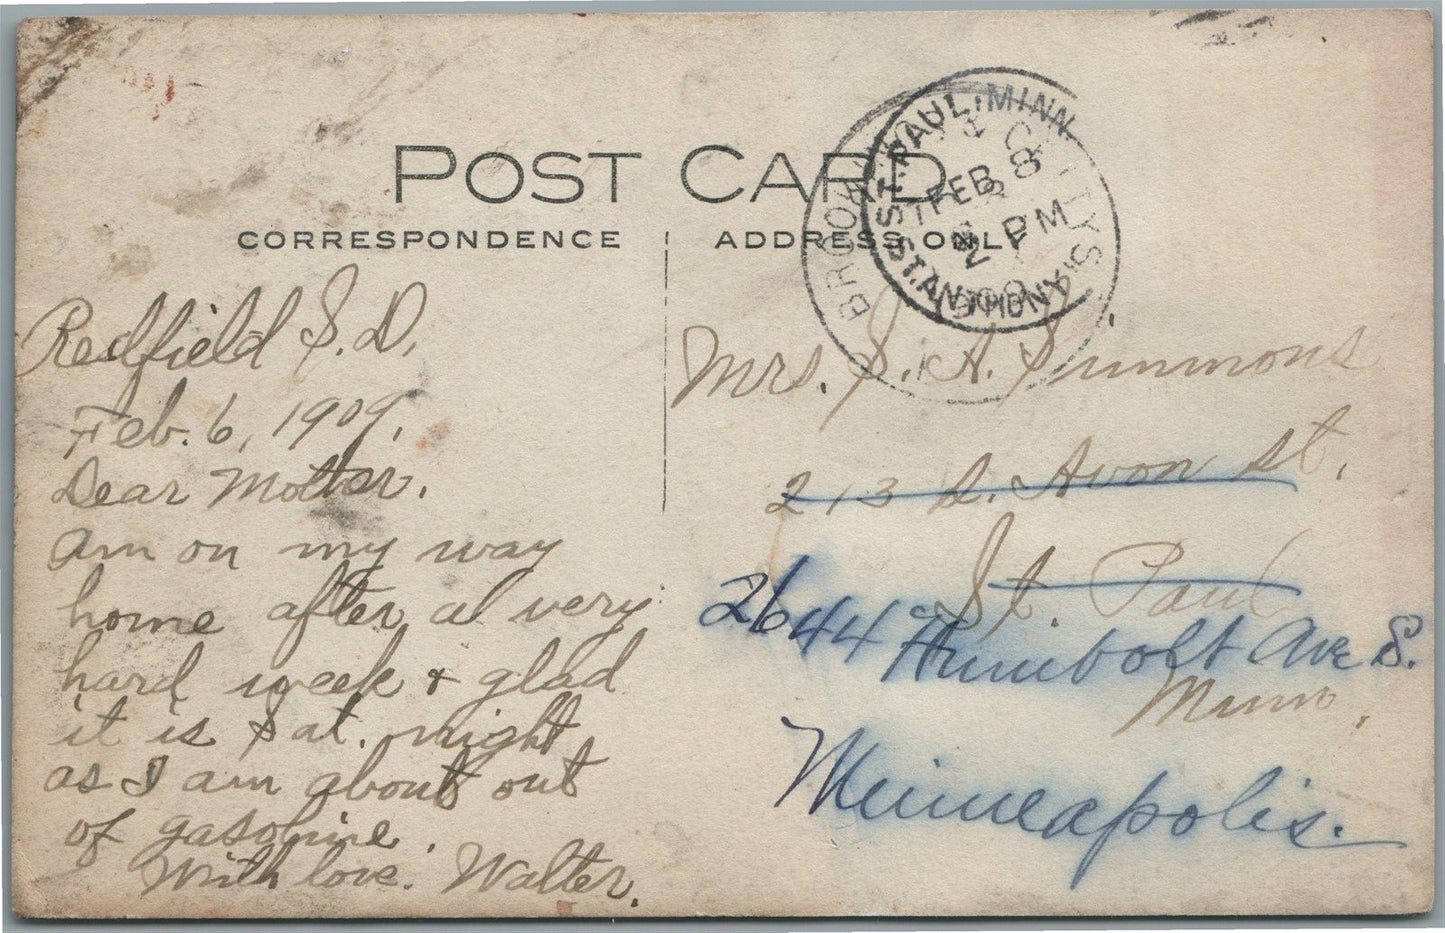 POST CARD
CORRESPONDENCE
ADDRESS ONLY
ST. PAUL, MINN.
FEB 8
2 PM
ST. ANTHONY
BROOKINGS
Redfield S.D.
Feb. 6, 1909.
Dear Mother.
Am on my way
home after a very
hard week & glad
it is Sat. night
as I am about out
of gasoline.
With love. Walter.
Mrs. S. A. Simmons
213 S. Avon St.,
St. Paul
Minn.
2644 Humbolt Ave S.
Minneapolis.